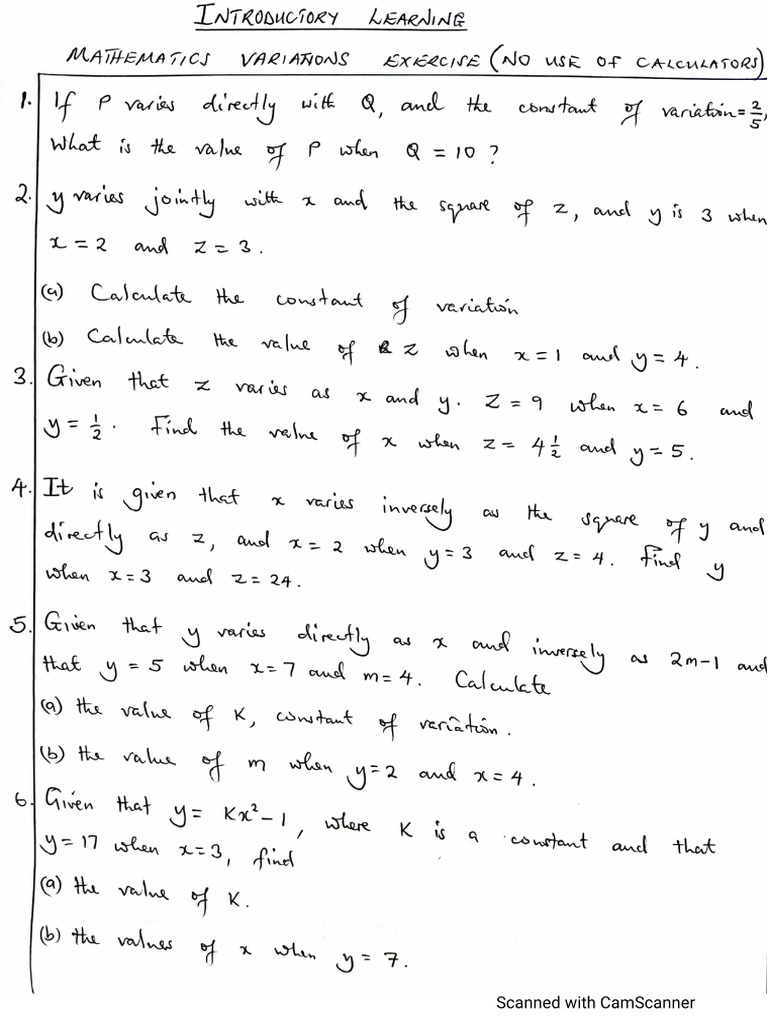 INTRODUCTORY LEARNING
MATHEMATICS VARIATIONS EXERCISE (NO USE OF CALCULATORS)
1. If P varies directly with Q, and the constant of variation = 2/5,
What is the value of P when Q = 10 ?
2. y varies jointly with x and the square of z, and y is 3 when
x = 2 and z = 3.
(a) Calculate the constant of variation
(b) Calculate the value of z when x = 1 and y = 4.
3. Given that z varies as x and y. Z = 9 when x = 6 and
y = 1/2. Find the value of x when z = 4 1/2 and y = 5.
4. It is given that x varies inversely as the square of y and
directly as z, and x = 2 when y = 3 and z = 4. Find y
when x = 3 and z = 24.
5. Given that y varies directly as x and inversely as 2m-1 and
that y = 5 when x = 7 and m = 4. Calculate
(a) the value of K, constant of variation.
(b) the value of m when y = 2 and x = 4.
6. Given that y = Kx² - 1, where K is a constant and that
y = 17 when x = 3, find
(a) the value of K.
(b) the values of x when y = 7.
Scanned with CamScanner